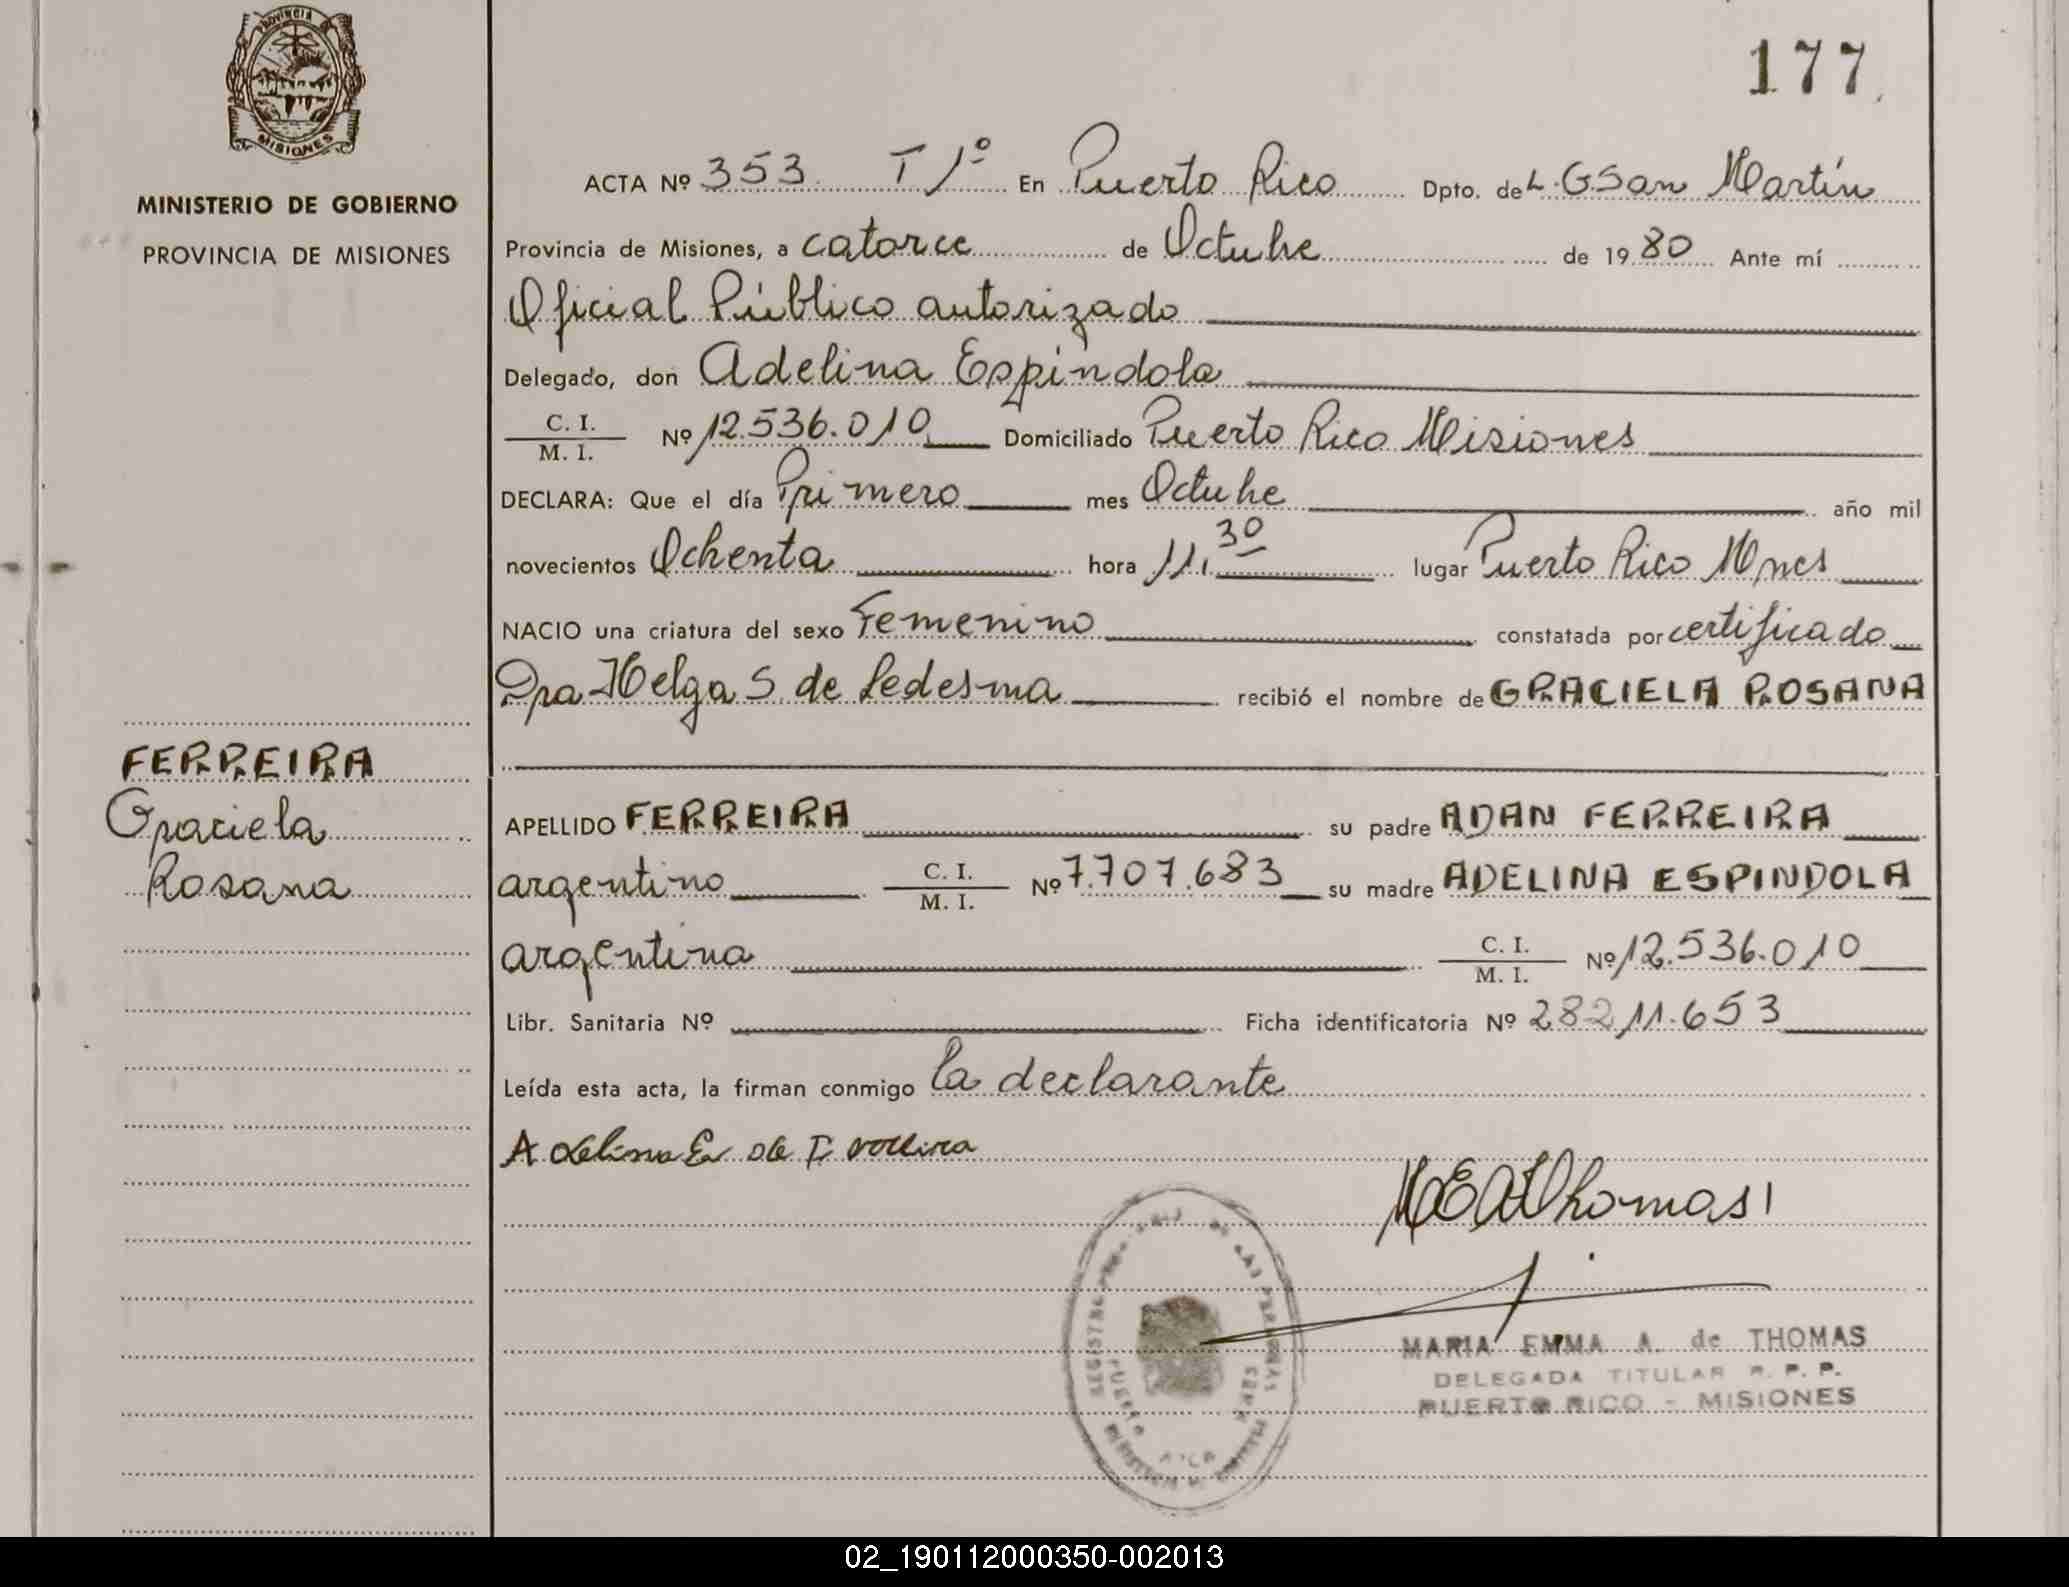 177
PROVINCIA
MISIONES
MINISTERIO DE GOBIERNO
PROVINCIA DE MISIONES
ACTA Nº 353 T 1º En Puerto Rico Dpto. de L.G San Martín
Provincia de Misiones, a catorce de Octubre de 1980 Ante mí
Oficial Público autorizado
Delegado, don Adelina Espíndola
C. I. / M. I. Nº 12.536.010 Domiciliado Puerto Rico Misiones
DECLARA: Que el día Primero mes Octubre año mil
novecientos Ochenta hora 11,30 lugar Puerto Rico Mnes
NACIO una criatura del sexo Femenino constatada por certificado
Dra Helga S. de Ledesma recibió el nombre de GRACIELA ROSANA
FERREIRA
Graciela
Rosana
APELLIDO FERREIRA su padre ADAN FERREIRA
argentino C. I. / M. I. Nº 7.707.683 su madre ADELINA ESPINDOLA
argentina C. I. / M. I. Nº 12.536.010
Libr. Sanitaria Nº Ficha identificatoria Nº 28211.653
Leída esta acta, la firman conmigo la declarante
Adelina E de
MEAThomas
MARIA EMMA A. de THOMAS
DELEGADA TITULAR R. P. P.
PUERTO RICO - MISIONES
02_190112000350-002013